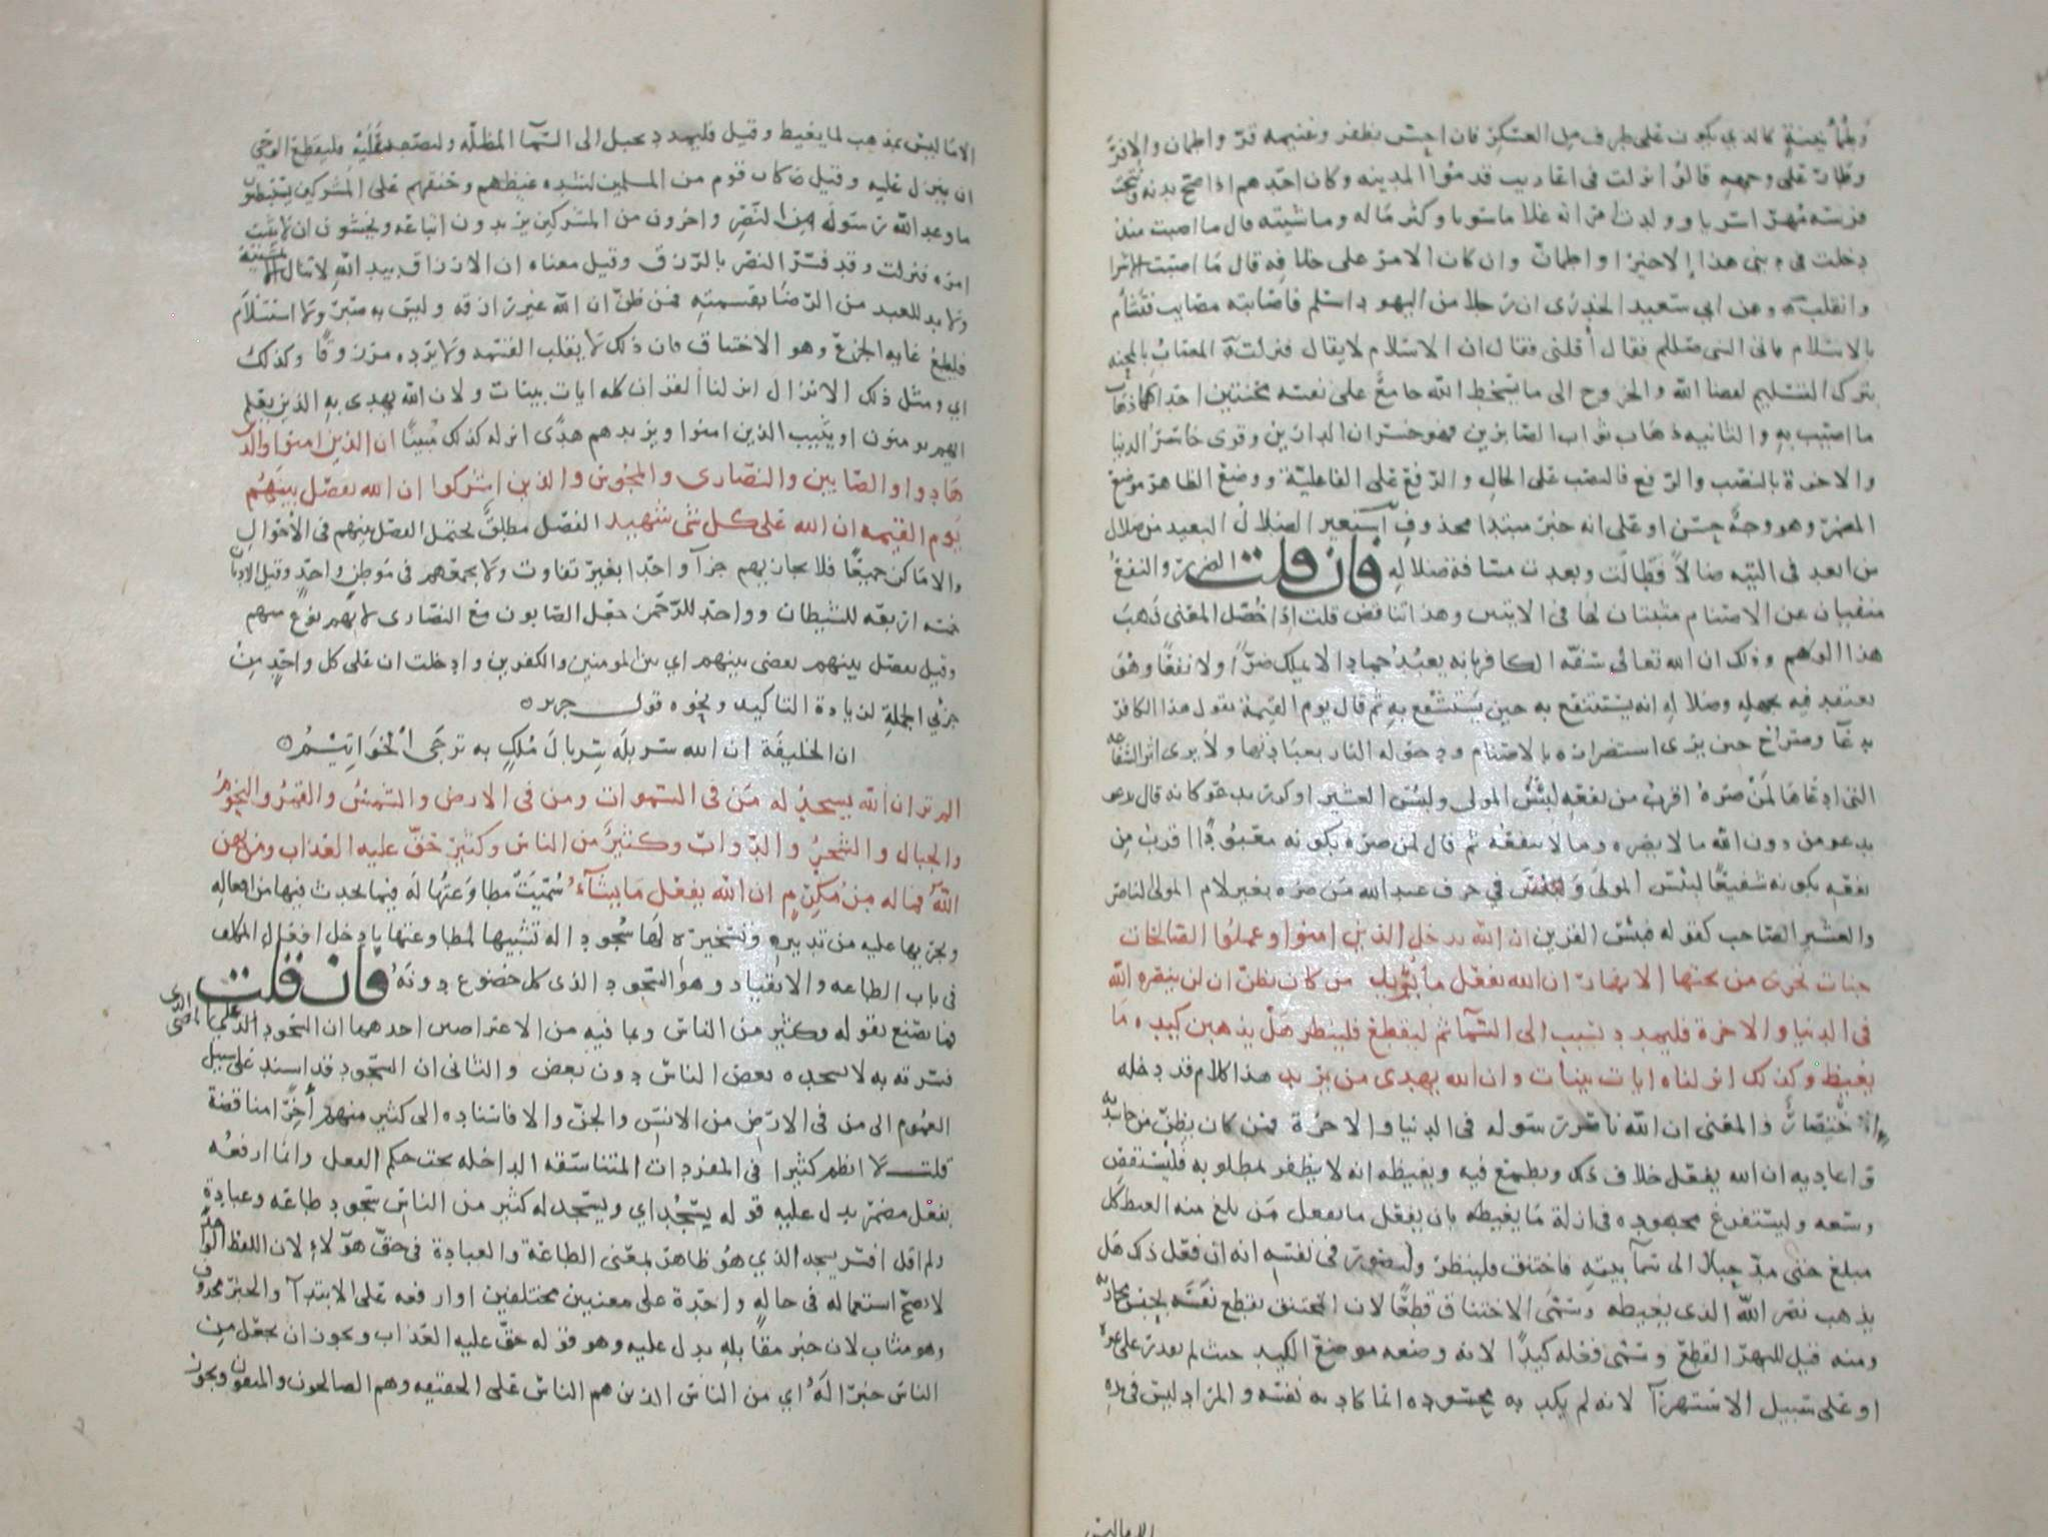 وطمأنينة كالذي يكون على طرف من العسكر فان احس بظفر وغنيمه قرّ واطمان والافرّ
وطار على وجهه قالوا نزلت في اعاريب قدموا المدينه وكان احدهم اذا صح بدنه ونتجت
فرسه مهرا سريا وولدت امرأته غلاما سويا وكثر ماله وماشيته قال ما اصبت منذ
دخلت في ديني هذا الاخيرا واطمان وان كان الامر على خلافه قال ما اصبت الاشرا
وانقلب وعن ابي سعيد الخدري ان رجلا من اليهود اسلم فاصابته مصايب فتشأم
بالاسلام فاتى النبي صللم فقال أقلني فقال ان الاسلام لا يقال فنزلت المصاب بالمحنه
بترك التسليم لقضا الله والخروج الى ما يسخط الله جامع على نفسه محنتين احداهما ذهاب
ما اصيب به والثانيه ذهاب ثواب الصابرين فهو خسران الدارين وقرى خاسر الدنيا
والاخرة بالنصب والرفع فالنصب على الحال والرفع على الفاعلية ووضع الظاهر موضع
المضمر وهو وجه حسن او على انه خبر مبتدا محذوف استعير الضلال البعيد من ضلال
من ابعد في التيه ضالا فطالت وبعدت مسافة ضلاله فان قلت الضرر والنفع
منفيان عن الاصنام مثبتان لها في الايتين وهذا تناقض قلت اذا حُصّل المعنى ذهب
هذا الوهم وذلك ان الله تعالى سفّه الكافر بانه يعبد جمادا لا يملك ضرّا ولا نفعا وهو
يعتقد فيه بجهله وضلاله انه يستنفع به حين يستشفع به ثم قال يوم القيمة يقول هذا الكافر
بدعآ وصراخ حين يرى استضراره بالاصنام ودخوله النار بعبادتها ولا يرى اثر الشفاعه
التي ادعاها لمن ضره اقرب من نفعه لبئس المولى ولبئس العشير او كرر يدعو كانه قال يدعو
يدعو من دون الله ما لا يضره وما لا ينفعه ثم قال لمن ضره بكونه معبودا اقرب من
نفعه بكونه شفيعا لبئس المولى و في حرف عبد الله من ضره بغير لام المولى الناصر
والعشير الصاحب كقوله فبئس القرين ان الله يدخل الذين امنوا وعملوا الصالحات
جنات تجرى من تحتها الانهار ان الله يفعل ما يريد من كان يظن ان لن ينصره الله
في الدنيا والاخرة فليمدد بسبب الى السمآ ثم ليقطع فلينظر هل يذهبن كيده ما
يغيظ وكذلك انزلناه ايات بينات وان الله يهدى من يريد هذا كلام قد دخله
اختصار والمعنى ان الله ناصر رسوله في الدنيا والاخرة فمن كان يظن من حاسديه
واعاديه ان الله يفعل خلاف ذلك ويطمع فيه ويغيظه انه لا يظفر بمطلوبه فليستقص
وسعه وليستفرغ مجهوده في ازلة ما يغيظه بان يفعل ما يفعل من بلغ منه الغيظ كل
مبلغ حتى مدّ حبلا الى سمآ بيته فاختنق فلينظر وليصور في نفسه انه ان فعل ذلك هل
يذهب نصر الله الذي يغيظه وسمّى الاختناق قطعا لان المختنق يقطع نفسه بحبس مجاريه
ومنه قيل للبهر القطع وسمى فعله كيدا لانه وضعه موضع الكيد حيث لم يقدر على غيره
او على سبيل الاستهزآ لانه لم يكد به محسوده انما كاد به نفسه والمراد ليس في يده
الا ما ليس
الا ما ليس بمذهب لما يغيظ وقيل فليمدد بحبل الى السمآ المظلّه وليصعد عليه فليقطع الوحي
ان ينزل عليه وقيل كان قوم من المسلمين لشده غيظهم وحنقهم على المشركين يستبطئون
ما وعد الله رسوله من النصر واخرون من المشركين يريدون اتباعه ويخشون ان لا يثبت
امره فنزلت وقد فسّر النصر بالرزق وقيل معناه ان الارزاق بيد الله لا تنال الا بمشيئته
ولا بد للعبد من الرضا بقسمته فمن ظنّ ان الله غير رازقه وليس به صبر ولا استسلام
فليبلغ غايه الجزع وهو الاختناق فان ذلك لا يقلب القسمه ولا يرده مرزوقا وكذلك
اي ومثل ذلك الانزال انزلنا القران كله ايات بينات ولان الله يهدى به الذين يعلم
انهم يومنون او يثبت الذين امنوا ويزيدهم هدًى انزله كذلك مبينا ان الذين امنوا والذين
هادوا والصابين والنصارى والمجوس والذين اشركوا ان الله يفصل بينهم
يوم القيمه ان الله على كل شى شهيد الفصل مطلق يحتمل الفصل بينهم في الاحوال
والاماكن جميعا فلا يجازيهم جزآ واحدا بغير تفاوت ولا يجمعهم في موطن واحد وقيل الاديان
خمسه اربعه للشيطان وواحد للرحمن جعل الصابون مع النصارى لانهم نوع منهم
وقيل يفصل بينهم يقضى بينهم اي بين المومنين والكفرين وادخلت ان على كل واحد من
جزئي الجملة لزيادة التاكيد ونحوه قول جرير
ان الخليفة ان الله سربله سربال ملك به ترجى الخواتيم
الم تر ان الله يسجد له من في السموات ومن في الارض والشمس والقمر والنجوم
والجبال والشجر والدواب وكثير من الناس وكثير حق عليه العذاب ومن يهن
الله فما له من مكرم ان الله يفعل ما يشآء سُمّيت مطاوعتها له فيما يحدث فيها من افعاله
ويجريها عليه من تدبيره وتسخيره لها سجودا له تشبيها لمطاوعتها بادخل افعال المكلف
في باب الطاعه والانقياد وهو السجود الذي كل خضوع دونه فان قلت
فما تصنع بقوله وكثير من الناس وبما فيه من الاعتراضين احدهما ان السجود الذي
فسرته به لا يسجده بعض الناس دون بعض والثاني ان السجود قد اسند على سبيل
العموم الى من في الارض من الانس والجن والا فاسناده الى كثير منهم أخرا مناقضة
قلت لا انظم كثيرا في المفردات المتناسقه الداخله تحت حكم الفعل وانما ارفعه
بفعل مضمر يدل عليه قوله يسجد اي ويسجد له كثير من الناس سجود طاعه وعبادة
ولم اقل افسر يسجد الذي هو ظاهر بمعنى الطاعة والعبادة في حق هولاء لان اللفظ الواحد
لا يصح استعماله في حاله واحدة على معنيين مختلفين او ارفعه على الابتدآ والخبر محذوف
وهو مثاب لان خبر مقابله يدل عليه وهو قوله حق عليه العذاب ويجوز ان يجعل من
الناس خبرا له اي من الناس الذين هم الناس على الحقيقه وهم الصالحون والمتقون ويجوز